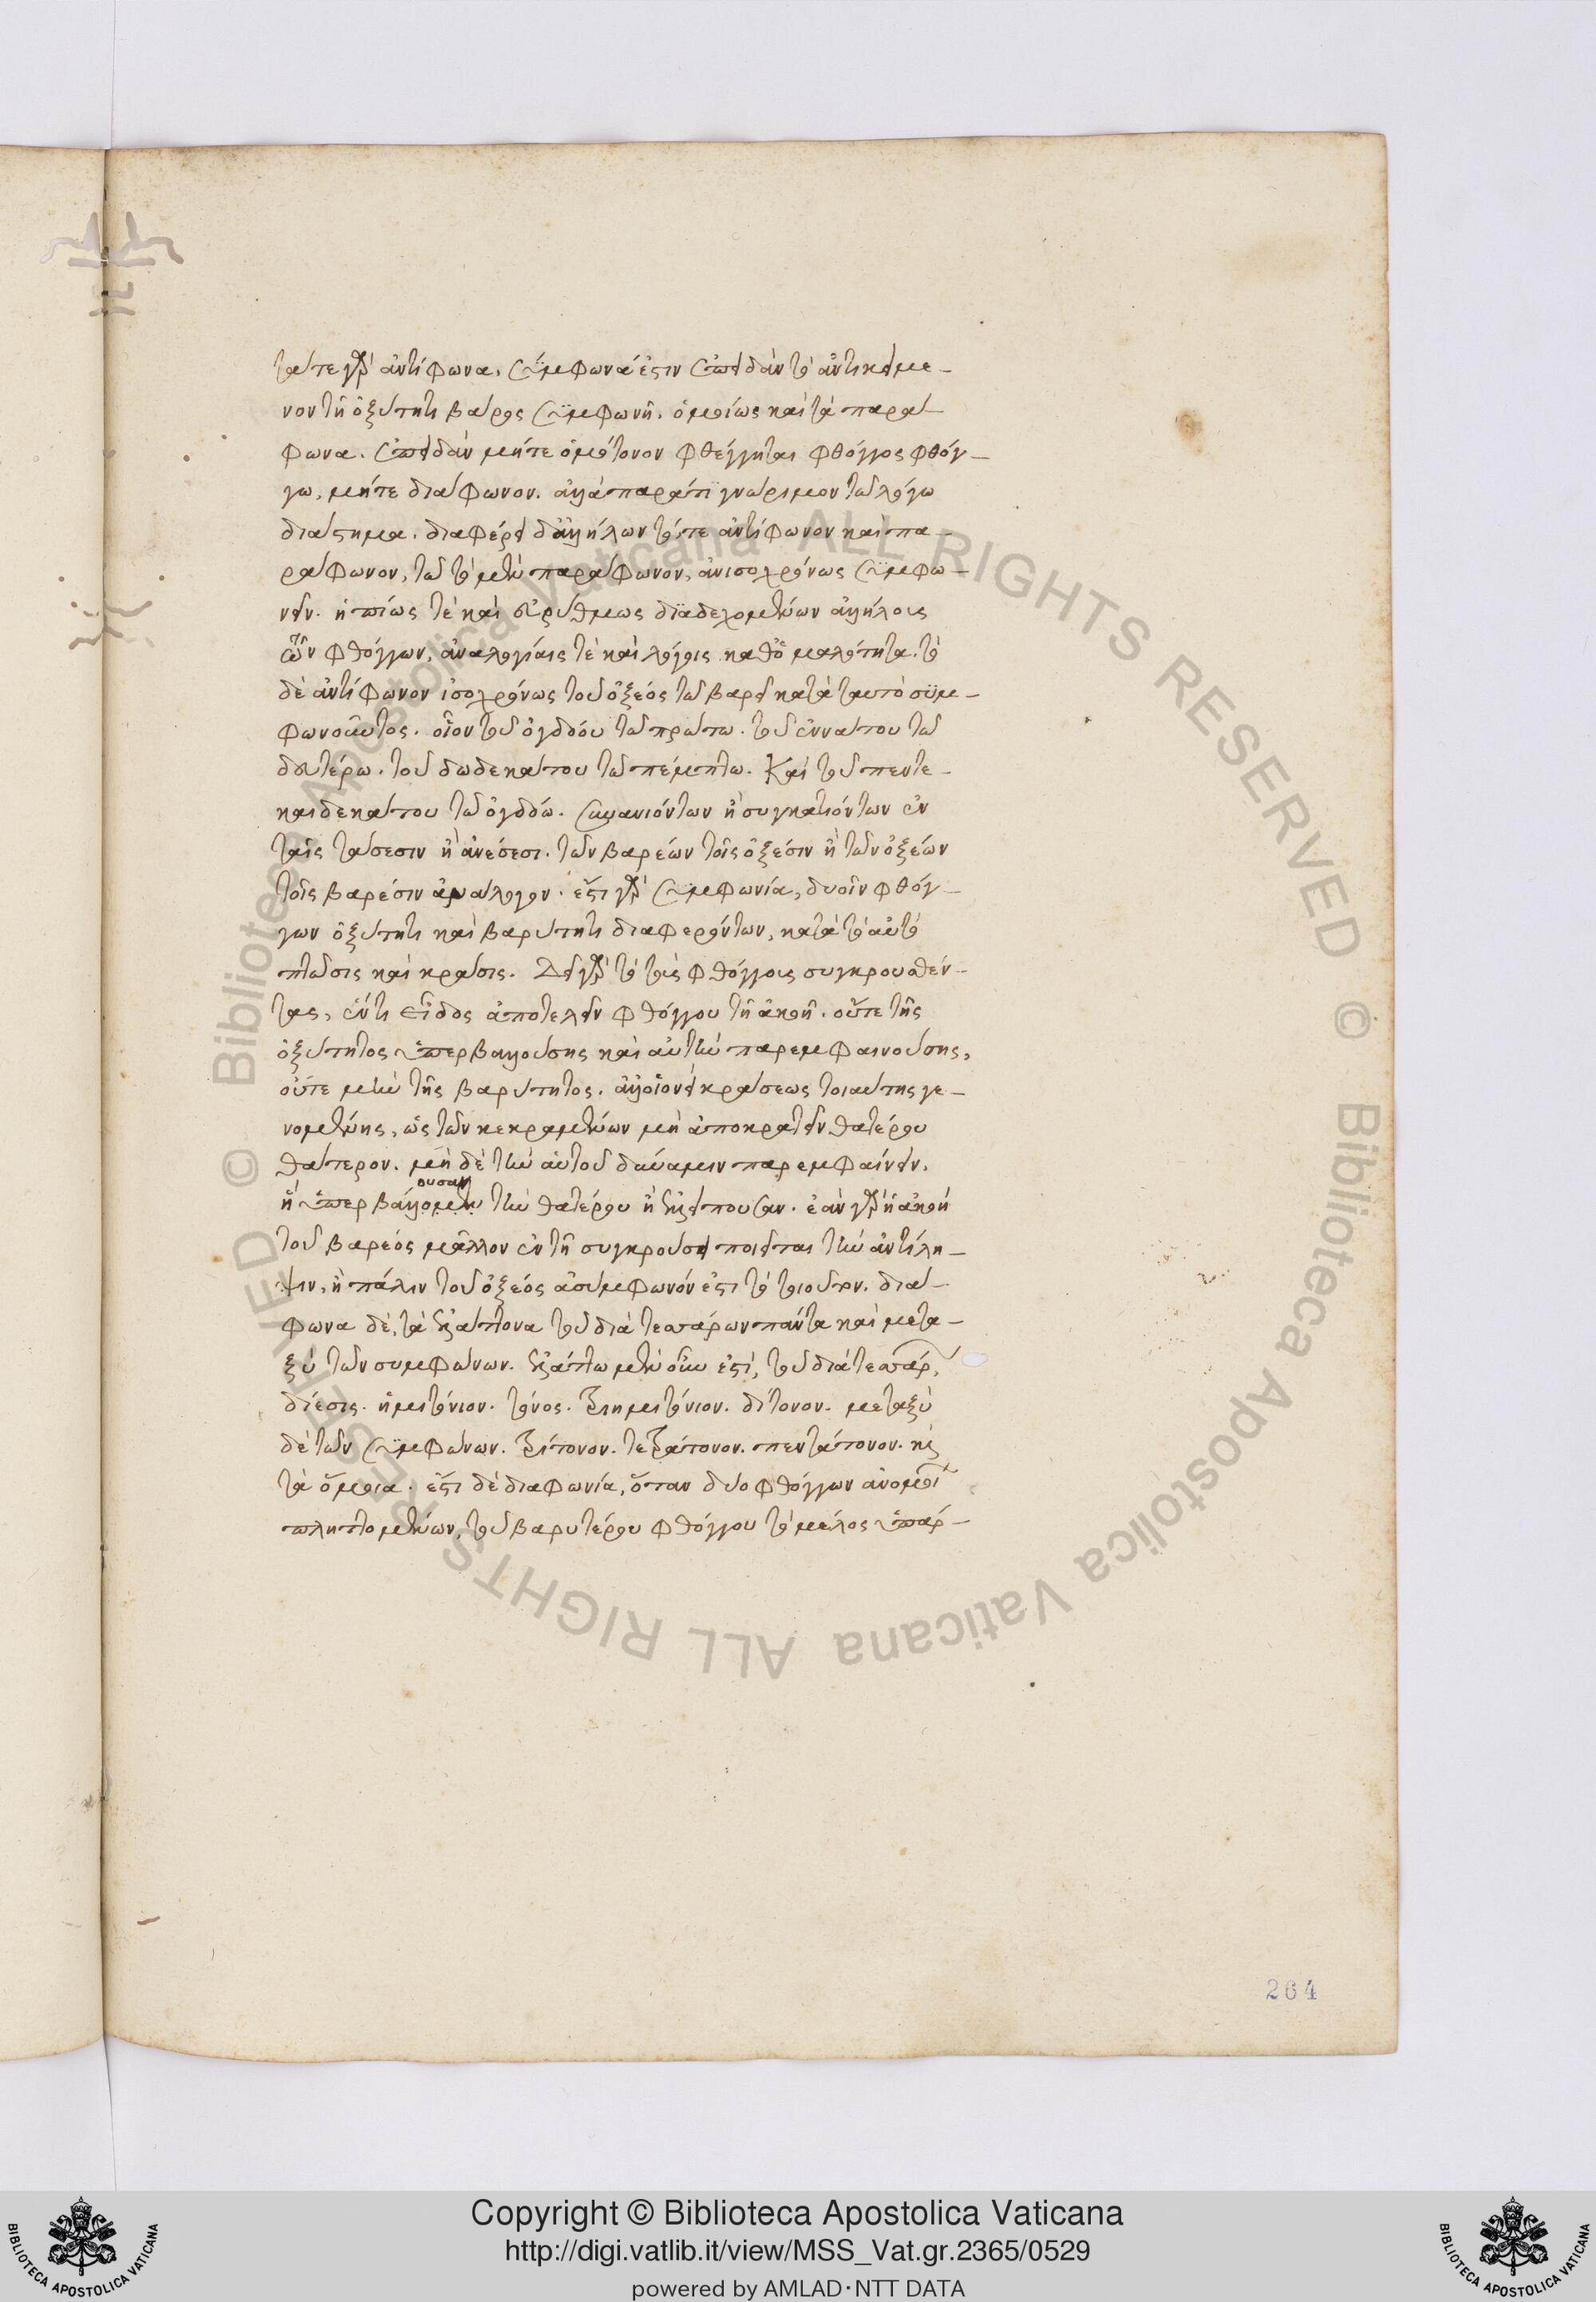 τά τε γὰρ ἀντίφωνα, σύμφωνά ἐστιν ἐπειδὰν τὸ ἀντικείμε-
νον τῇ ὀξύτητι βάρος συμφωνῇ. ὁμοίως καὶ τὰ παρά-
φωνα. ἐπειδὰν μήτε ὁμότονον φθέγγηται φθόγγος φθόγ-
γω, μήτε διάφωνον. ἀλλὰ παρά τι γνώριμον τῶ λόγω
διάστημα. διαφέρει δ' ἀλλήλων τό, τε ἀντίφωνον καὶ πα-
ράφωνον, τῶ τὸ μὲν παράφωνον, ἀνισοχρόνως συμφω-
νεῖν. ἠπίως τὲ καὶ εὐρύθμως διαδεχομένων ἀλλήλους
τῶν φθόγγων, ἀναλογίαις τὲ καὶ λόγοις καθ' ὁμαλότητα. τὸ
δὲ ἀντίφωνον ἰσοχρόνως τοῦ ὀξέος τῶ βαρεῖ κατὰ ταυτὸ συμ-
φωνοῦντος. οἷον τοῦ ὀγδόου τῶ πρώτω. τοῦ ἐννάτου τῶ
δευτέρω. τοῦ δωδεκάτου τῶ πέμπτω. καὶ τοῦ πεντε-
καιδεκάτου τῶ ὀγδόω. συνανιόντων ἢ συγκατιόντων ἐν
ταῖς τάσεσιν ἢ ἀνέσεσι. τῶν βαρέων τοῖς ὀξέσιν ἢ τῶν ὀξέων
τοῖς βαρέσιν ἀνάλογον. ἔστι γὰρ συμφωνία, δυοῖν φθόγ-
γων ὀξύτητι καὶ βαρύτητι διαφερόντων, κατὰ τὸ αὐτὸ
πτῶσις καὶ κρᾶσις. δεῖ γὰρ τὸ τοὺς φθόγγους συγκρουσθέν-
τας, ἕν τι εἶδος ἀποτελεῖν φθόγγου τῇ ἀκοῇ. οὔτε τῆς
ὀξύτητος ὑπερβαλλούσης καὶ αὑτὴν παρεμφαινούσης,
οὔτε μὴν τῆς βαρύτητος. ἀλλ' οἱονεὶ κράσεως τοιαύτης γε-
νομένης, ὡς τῶν κεκραμένων μὴ ἀποκρατεῖν θατέρου
θάτερον. μὴ δὲ τὴν αὑτοῦ δύναμιν παρεμφαίνειν,
ουσαν
ἢ ὑπερβάλλομεν τὴν θατέρου ἢ ἐλλείπουσαν. ἐὰν γὰρ ἡ ἀκοὴ
τοῦ βαρέος μᾶλλον ἐν τῇ συγκρούσει ποιεῖται τὴν ἀντίλη-
ψιν, ἢ πάλιν τοῦ ὀξέος ἀσύμφωνόν ἐστι τὸ τοιοῦτον. διά-
φωνα δὲ, τὰ ἐλάττονα τοῦ διὰ τεσσάρων πάντα καὶ μετα-
ξὺ τῶν συμφώνων. ἐλάττω μὲν οὖν ἐστὶ, τοῦ διὰ τεσσάρ,
δίεσις. ἡμιτόνιον. τόνος. τριημιτόνιον. δίτονον. μεταξὺ
δὲ τῶν συμφώνων. τρίτονον. τετράτονον. πεντάτονον. καὶ
τὰ ὅμοια. ἔστι δὲ διαφωνία, ὅταν δύο φθόγγων ἀνομοί
πληττομένων, τοῦ βαρυτέρου φθόγγου τὸ μέλος ὑπάρ-
264
© Biblioteca Apostolica Vaticana ALL RIGHTS RESERVED © Biblioteca Apostolica Vaticana ALL RIGHTS RESERVED
BIBLIOTECA APOSTOLICA VATICANA
Copyright © Biblioteca Apostolica Vaticana
http://digi.vatlib.it/view/MSS_Vat.gr.2365/0529
powered by AMLAD·NTT DATA
BIBLIOTECA APOSTOLICA VATICANA